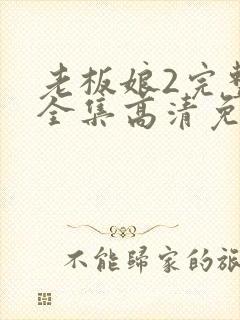 老板娘2完整
全集高清免
不能歸家的旅